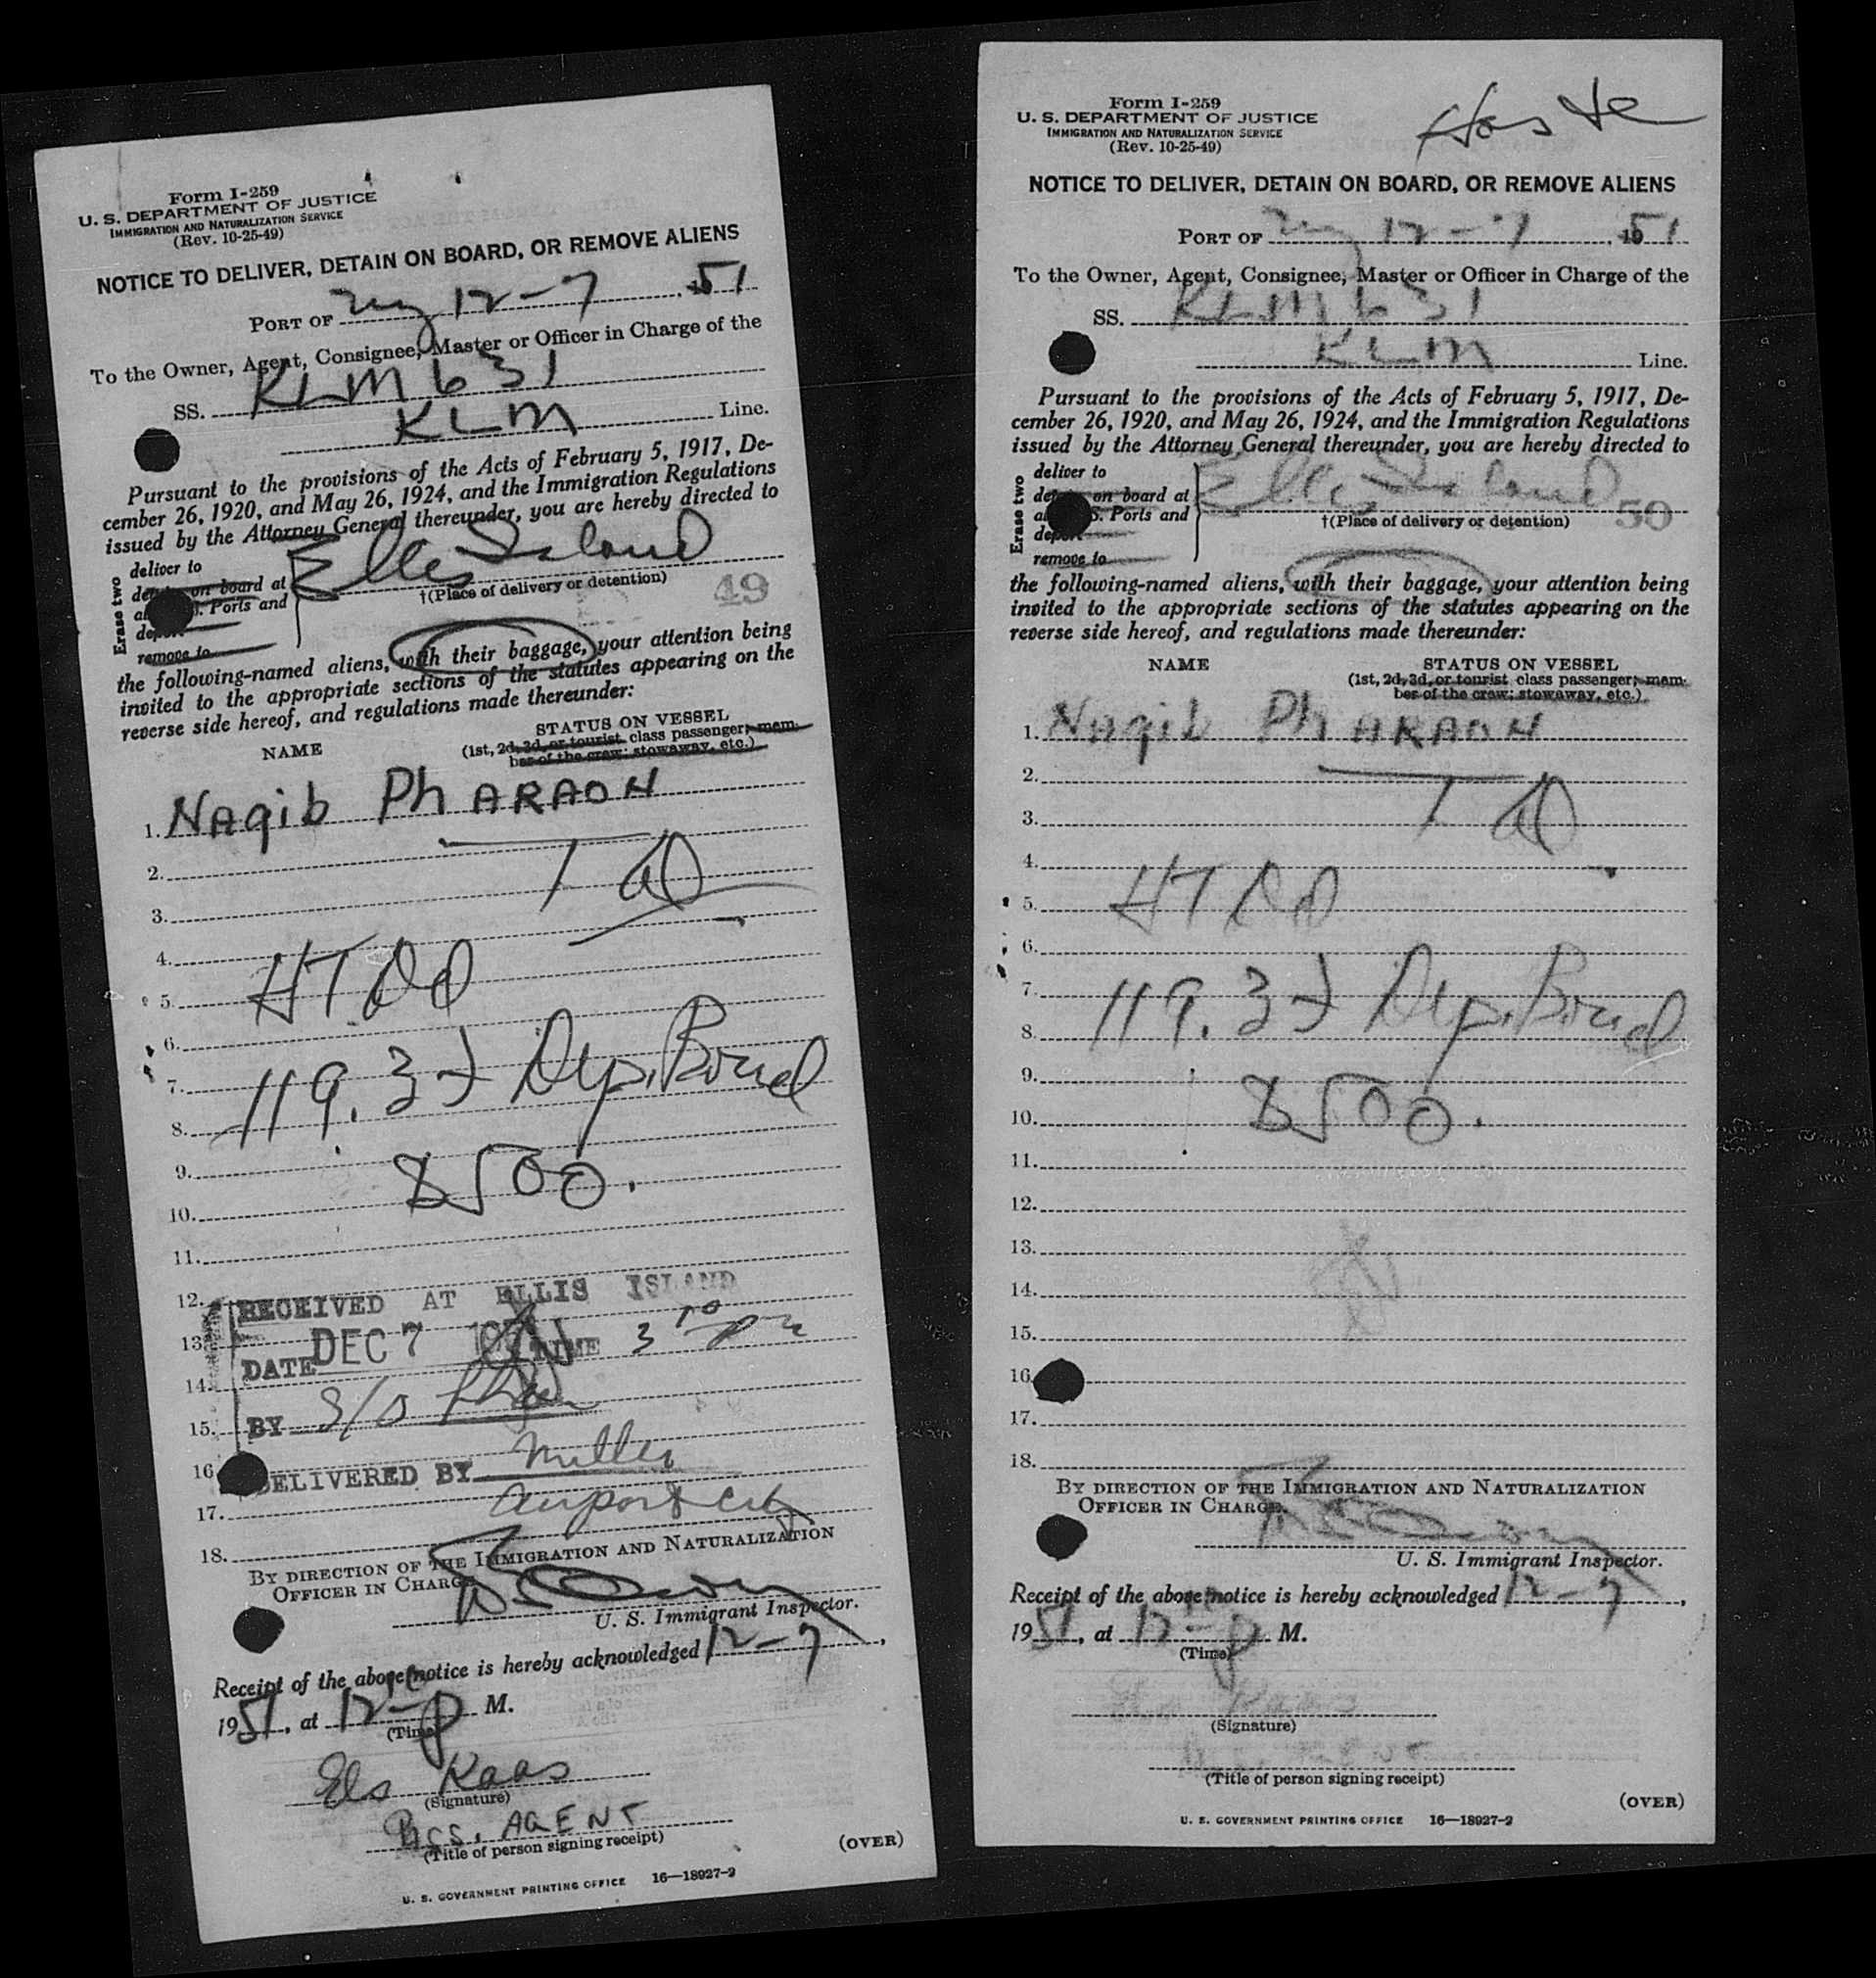 Form I-259
U. S. DEPARTMENT OF JUSTICE
IMMIGRATION AND NATURALIZATION SERVICE
(Rev. 10-25-49)
NOTICE TO DELIVER, DETAIN ON BOARD, OR REMOVE ALIENS
PORT OF NY 12-7, 51
To the Owner, Agent, Consignee, Master or Officer in Charge of the
SS. KLM 631
KLM Line.
Pursuant to the provisions of the Acts of February 5, 1917, De-
cember 26, 1920, and May 26, 1924, and the Immigration Regulations
issued by the Attorney General thereunder, you are hereby directed to
Erase two
deliver to
on board at Ellis Island
Ports and
†(Place of delivery or detention) 49
remove to
the following-named aliens, with their baggage, your attention being
invited to the appropriate sections of the statutes appearing on the
reverse side hereof, and regulations made thereunder:
NAME STATUS ON VESSEL
(1st, 2d, 3d, or tourist class passenger; mem-
ber of the crew; stowaway, etc.)
1. Naqib PhARAON
2.
3.
4.
5.
6.
7. 119.3
8.
9. 500.
10.
11.
12. RECEIVED AT ELLIS ISLAND
13. DATE DEC 7 TIME 3
14.
15. BY
16 DELIVERED BY Miller
17. airport
18.
BY DIRECTION OF THE IMMIGRATION AND NATURALIZATION
OFFICER IN CHARGE.
U. S. Immigrant Inspector.
Receipt of the above notice is hereby acknowledged 12-7,
1951, at 12 p M.
(Time)
Els Kaas
(Signature)
Pass. AGENT
(Title of person signing receipt)
(OVER)
U. S. GOVERNMENT PRINTING OFFICE 16—18927-2
Form I-259
U. S. DEPARTMENT OF JUSTICE
IMMIGRATION AND NATURALIZATION SERVICE
(Rev. 10-25-49)
NOTICE TO DELIVER, DETAIN ON BOARD, OR REMOVE ALIENS
PORT OF NY 12-7, 1951
To the Owner, Agent, Consignee, Master or Officer in Charge of the
SS. KLM 631
KLM Line.
Pursuant to the provisions of the Acts of February 5, 1917, De-
cember 26, 1920, and May 26, 1924, and the Immigration Regulations
issued by the Attorney General thereunder, you are hereby directed to
Erase two
deliver to
on board at Ellis Island
Ports and
†(Place of delivery or detention) 50
remove to
the following-named aliens, with their baggage, your attention being
invited to the appropriate sections of the statutes appearing on the
reverse side hereof, and regulations made thereunder:
NAME STATUS ON VESSEL
(1st, 2d, 3d, or tourist class passenger; mem-
ber of the crew; stowaway, etc.)
1. Naqib PhARAON
2.
3.
4.
5.
6.
7. 119.3
8.
9.
10. 500.
11.
12.
13.
14.
15.
16.
17.
18.
BY DIRECTION OF THE IMMIGRATION AND NATURALIZATION
OFFICER IN CHARGE.
U. S. Immigrant Inspector.
Receipt of the above notice is hereby acknowledged 12-7,
1951, at 12 p M.
(Time)
Els Kaas
(Signature)
(Title of person signing receipt)
(OVER)
U. S. GOVERNMENT PRINTING OFFICE 16—18927-2